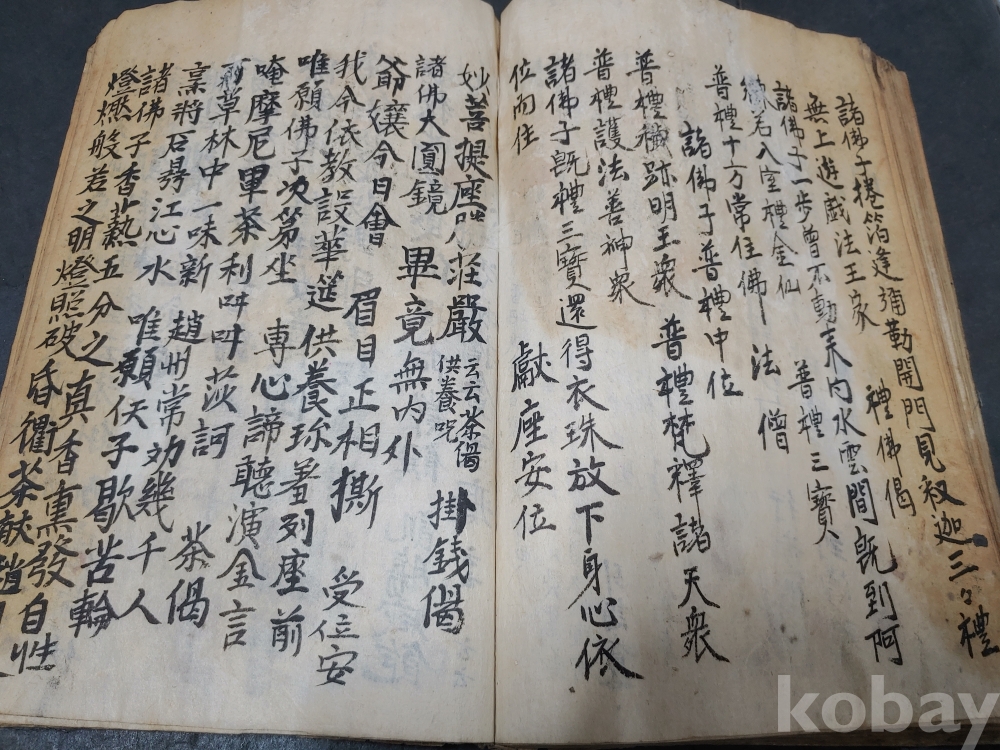 諸佛子捲箔逢彌勒開門見釈迦三々禮
無上遊戯法王家　禮佛偈
諸佛子一步曾不動来向水雲間旣到阿
練若入室禮金仙　普禮三寶
普禮十方常住佛　法　僧
諸佛子普禮中位
普禮穢跡明王衆　普禮梵釋諸天衆
普禮護法善神衆
諸佛子旣禮三寶還得衣珠放下身心依
位而住　獻座安位
妙菩提座莊嚴　云云茶偈供養呪　掛錢偈
諸佛大圓鏡　畢竟無內外
爺孃今日會　眉目正相撕
我今依教設華筵供養珎羞列座前　受位安
唯願佛子次第坐　專心諦聽演金言
唵摩尼軍茶利吽吽莎訶　茶偈
草林中一味新　趙州常勸幾千人
烹將石鼎江心水　唯願仸子歇苦輪
諸佛子香爇五分之真香熏發自性
燈燃般若之明燈照破昏衢茶献趙
kobay